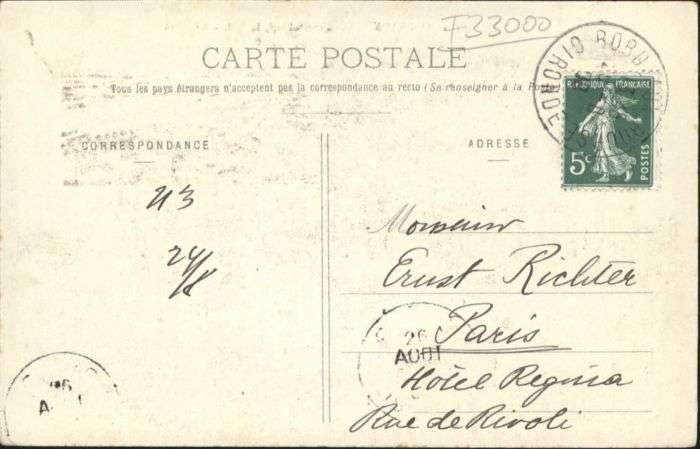 F33000
CARTE POSTALE
Tous les pays étrangers n'acceptent pas la correspondance au recto (Se renseigner à la Poste)
CORRESPONDANCE
ADRESSE
REPUBLIQUE FRANÇAISE
5c
POSTES
BORD
GIRONDE
Monsieur
Ernst Richter
Paris
Hôtel Regina
Rue de Rivoli
26
AOUT
24/8